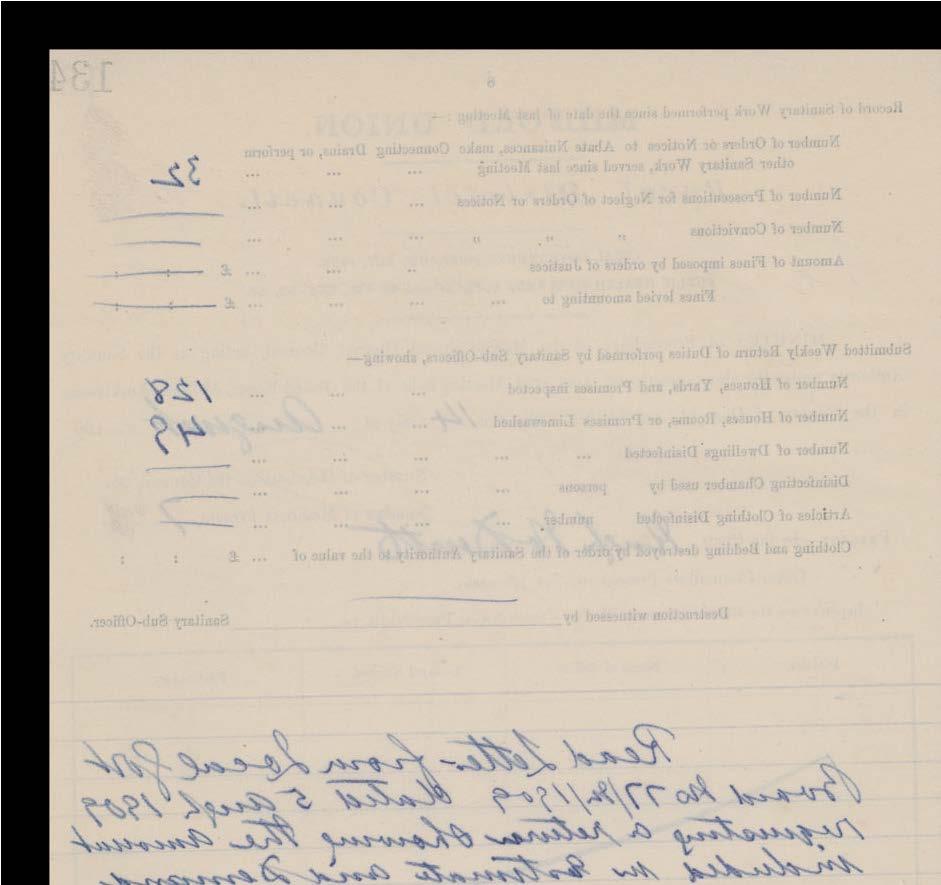 134
8
Record of Sanitary Work performed since the date of last Meeting :—
Number of Orders or Notices to Abate Nuisances, make Connecting Drains, or perform
other Sanitary Work, served since last Meeting ... ... ... 32
Number of Prosecutions for Neglect of Orders or Notices ... ... ...
Number of Convictions " " " ... ... ...
Amount of Fines imposed by orders of Justices .. ... ... £ : :
Fines levied amounting to ... ... ... ... £ : :
Submitted Weekly Return of Duties performed by Sanitary Sub-Officers, showing—
Number of Houses, Yards, and Premises inspected ... ... ... 128
Number of Houses, Rooms, or Premises Limewashed ... ... ... 45
Number of Dwellings Disinfected ... ... ... ... ...
Disinfecting Chamber used by persons ... ... ... ...
Articles of Clothing Disinfected number ... ... ... ...
Clothing and Bedding destroyed by order of the Sanitary Authority to the value of ... £ : :
Destruction witnessed by Sanitary Sub-Officer.
Read Letter from Local Govt
Board No dated 5 Augt 1909
requesting a return showing the amount
included in Estimate and Demand